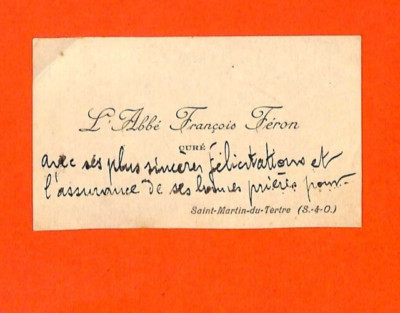 L'Abbé François Féron
CURÉ
avec ses plus sincères félicitations et
l'assurance de ses bonnes prières pour
Saint-Martin-du-Tertre (S.-&-O.)